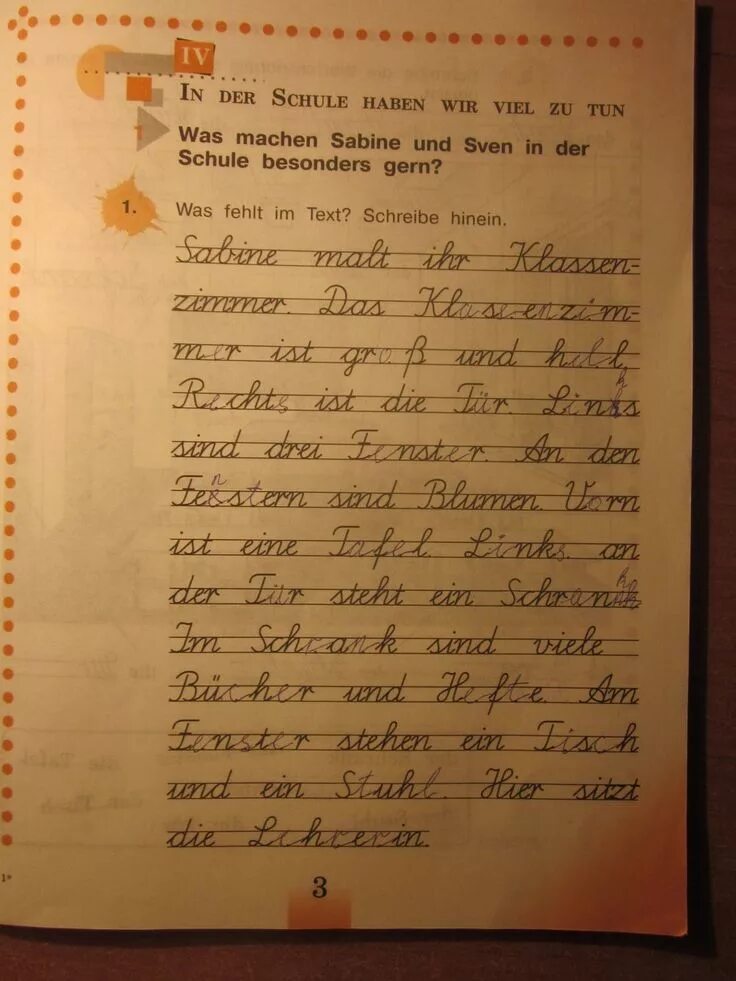 IV
IN DER SCHULE HABEN WIR VIEL ZU TUN
1
Was machen Sabine und Sven in der
Schule besonders gern?
1.
Was fehlt im Text? Schreibe hinein.
Sabine malt ihr Klassen-
zimmer. Das Klassenzim-
mer ist groß und hell.
Rechts ist die Tür. Links
sind drei Fenster. An den
Fenstern sind Blumen. Vorn
ist eine Tafel. Links an
der Tür steht ein Schrank
Im Schrank sind viele
Bücher und Hefte. Am
Fenster stehen ein Tisch
und ein Stuhl. Hier sitzt
die Lehrerin.
1*
3